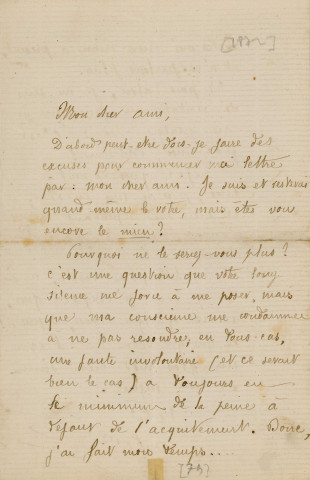 [1872]
Mon cher ami,
D'abord peut-etre dois-je faire des
excuses pour commencer ma lettre
par : mon cher ami. Je suis et resterai
quand même le votre, mais êtes vous
encore le mien ?
Pourquoi ne le seriez-vous plus ?
c'est une question que votre long
silence me force à me poser, mais
que ma conscience me condamne
a ne pas resoudre, en tous cas,
une faute involontaire (et ce serait
bien le cas) a toujours eu
le minimum de la peine à
défaut de l'acquitement. Donc,
j'ai fait mon temps....